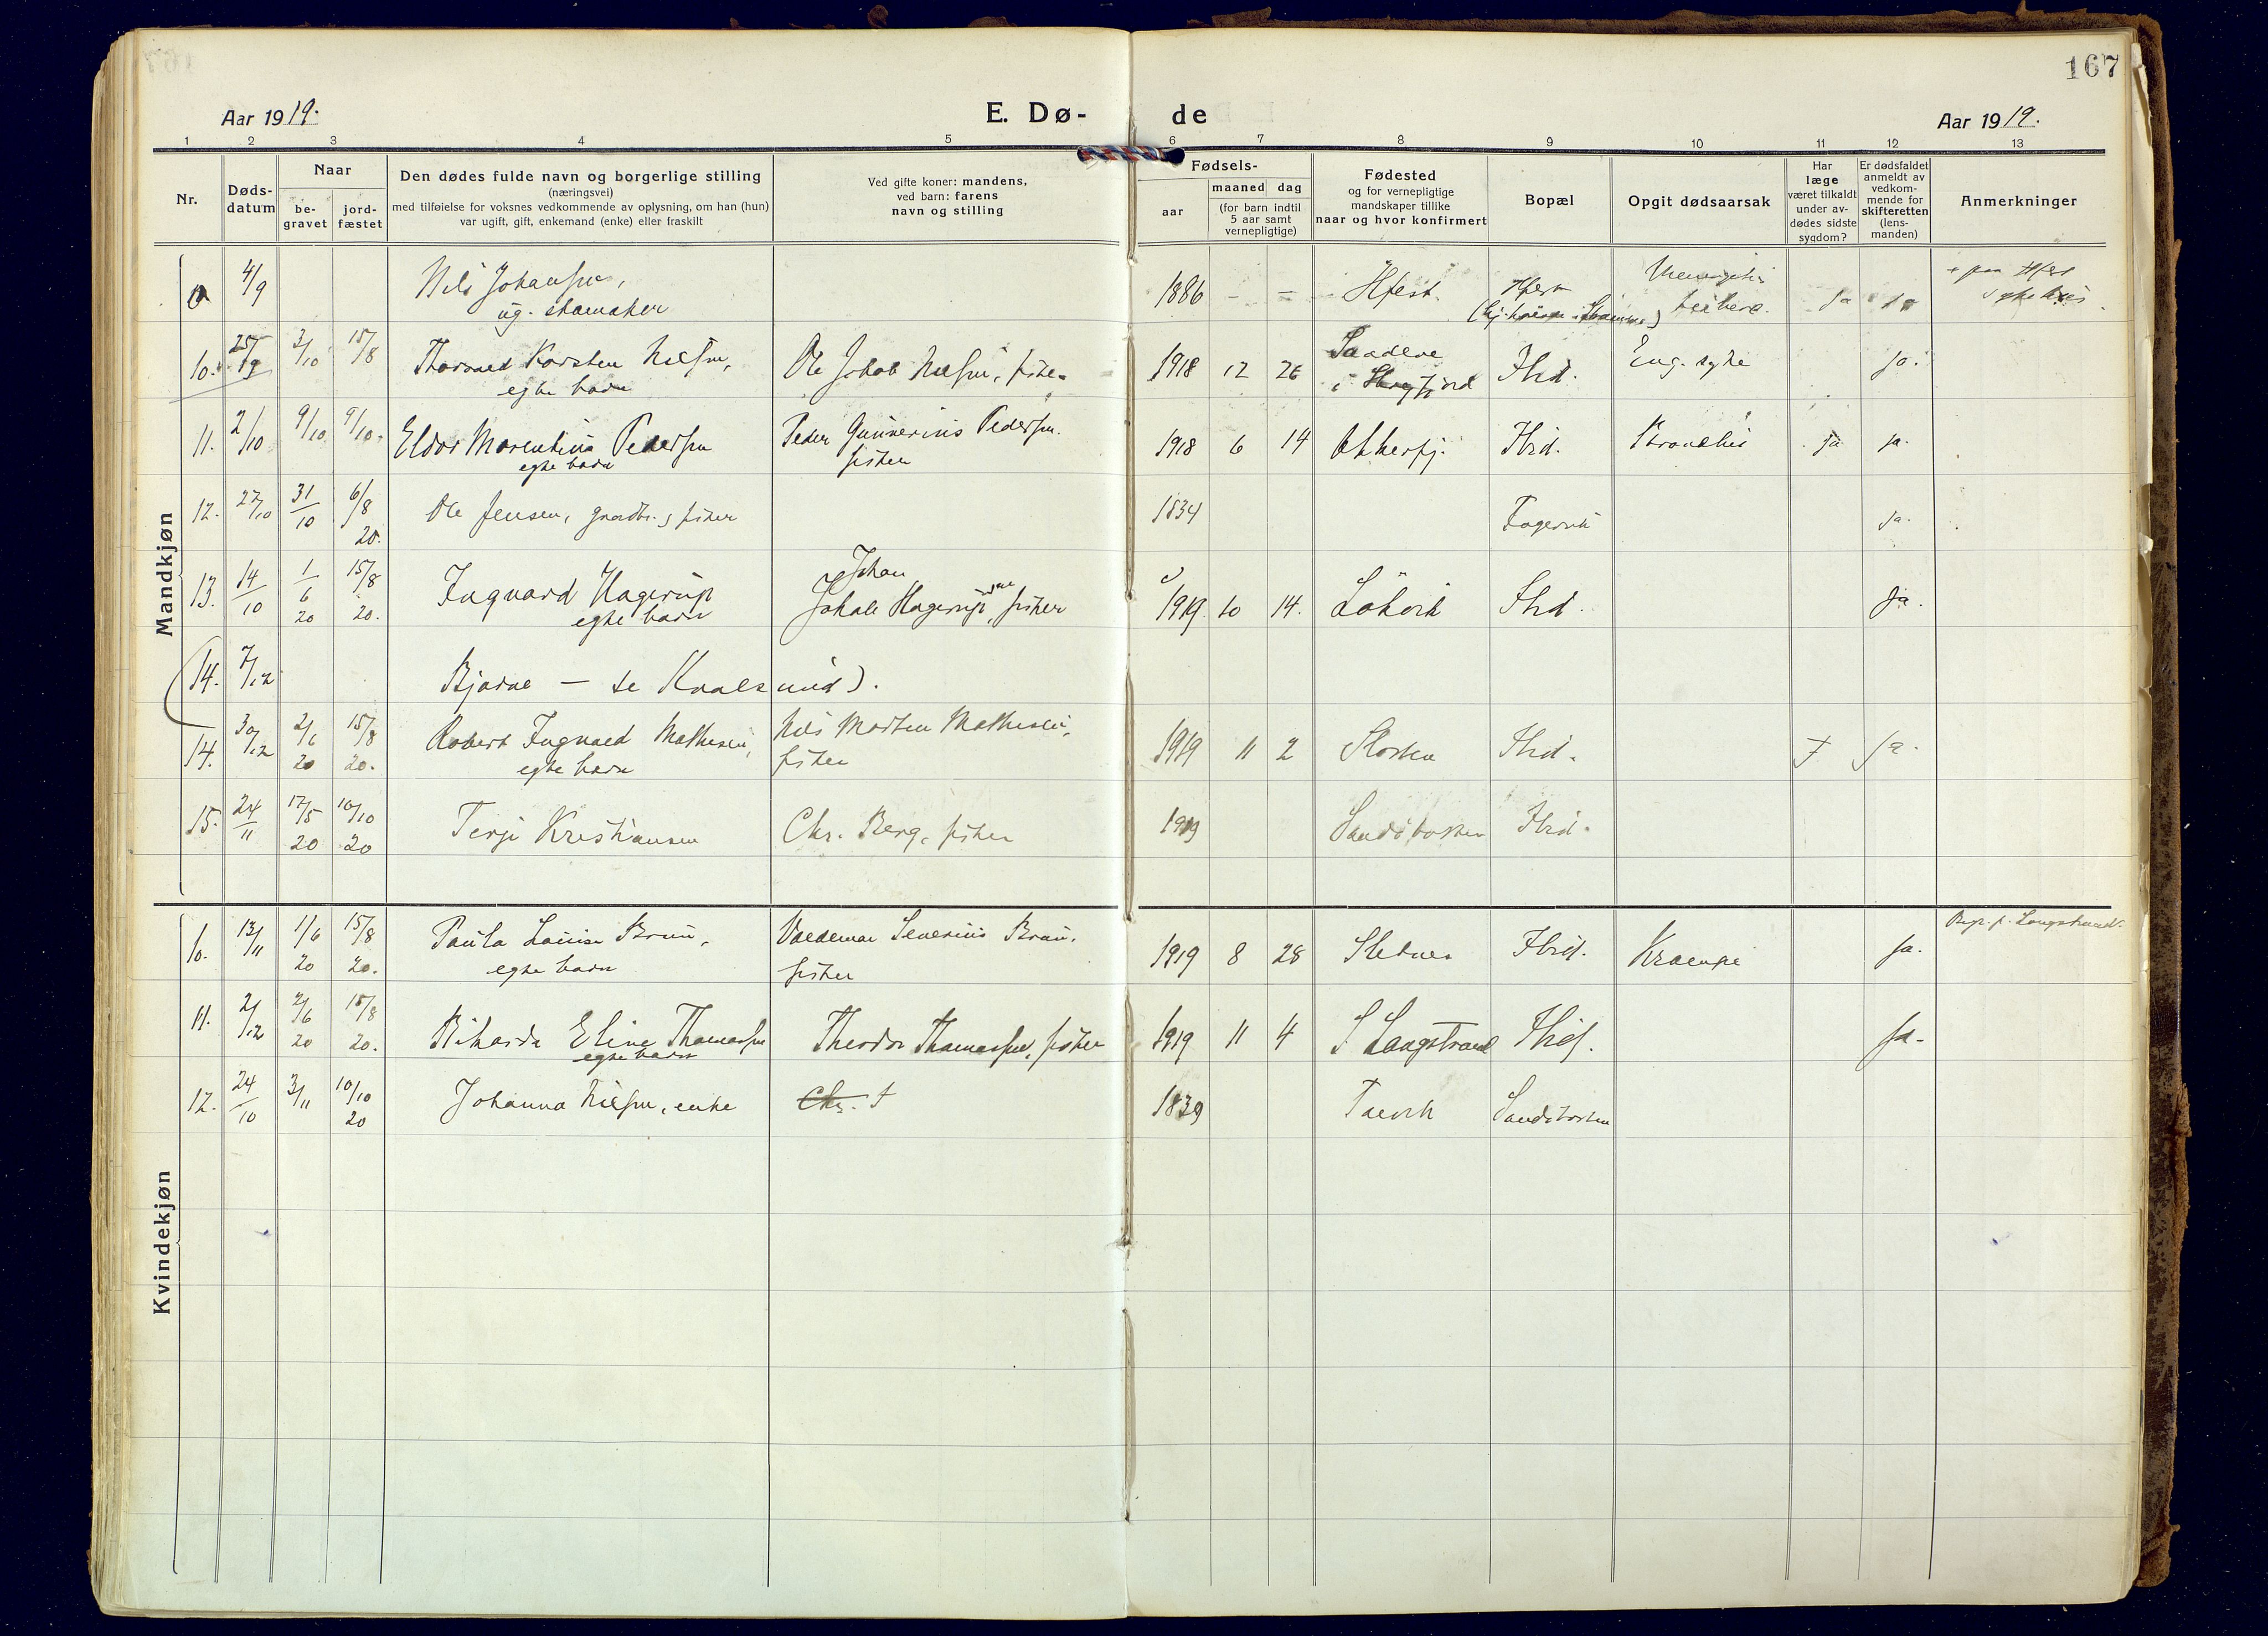 167
Aar 1919.
E. Dø-
de
Aar 1919.
1 2 3 4 5 6 7 8 9 10 11 12 13
Nr.
Døds-
datum
Naar
be-
gravet
jord-
fæstet
Den dødes fulde navn og borgerlige stilling
(næringsvei)
med tilføielse for voksnes vedkommende av oplysning, om han (hun)
var ugift, gift, enkemand (enke) eller fraskilt
Ved gifte koner: mandens,
ved barn: farens
navn og stilling
Fødsels-
aar
maaned dag
(for barn indtil
5 aar samt
vernepligtige)
Fødested
og for vernepligtige
mandskaper tillike
naar og hvor konfirmert
Bopæl
Opgit dødsaarsak
Har
læge
været tilkaldt
under av-
dødes sidste
sygdom?
Er dødsfaldet
anmeldt av
vedkom-
mende for
skifteretten
(lens-
manden)
Anmerkninger
Mandkjøn
4/9 Nils Johansen, 1886 - - Hfest. Hfest ja ja + paa Hfest
ug. skomaker sykehus
10. 25/9 3/10 15/8 Thorvald Karsten Nilsen, Ole Jakob Nilsen, fisker 1918 12 26 Hrd. Eng. syke ja.
egte barn
11. 2/10 9/10 9/10. Eldor Morentius Pedersen Peder Gunnerius Pedersen. 1918 6 14 Hrd. ja ja.
egte barn fisker
12. 27/10 31/10 6/8 20. Ole Jensen, gaardbr. fisker 1834 Fagervik ja.
13. 14/10 1/6 20 15/8 20. Ingvard Hagerup Johan Hagerup, fisker 1919 10 14. Lökvik Hrd. ja.
egte barn
14. 7/12 Bjarne — se Kvalsund).
14. 30/12 2/6 20 15/8 20. Robert Ingvald Mathesen, Nils Morten Mathesen, 1919 11 2 Hrd. ja.
egte barn fisker
15. 24/11 17/5 20 10/10 20 Terje Kristiansen Chr. Berg, fisker 1919 Hrd.
Kvindekjøn
10. 13/11 1/6 20 15/8 20. Paula Louise Brun, Valdemar Severius Brun, 1919 8 28 Sletnes Hrd. Krampe ja.
egte barn fisker
11. 2/12 2/6 20 15/8 20. Rikarda Eline Thomassen Theodor Thomassen, fisker 1919 11 4 S Langstrand Hrd. ja.
egte barn
12. 24/10 3/11 10/10 20 Johanna Nilsen, enke Chr. † 1839 Sandbotten